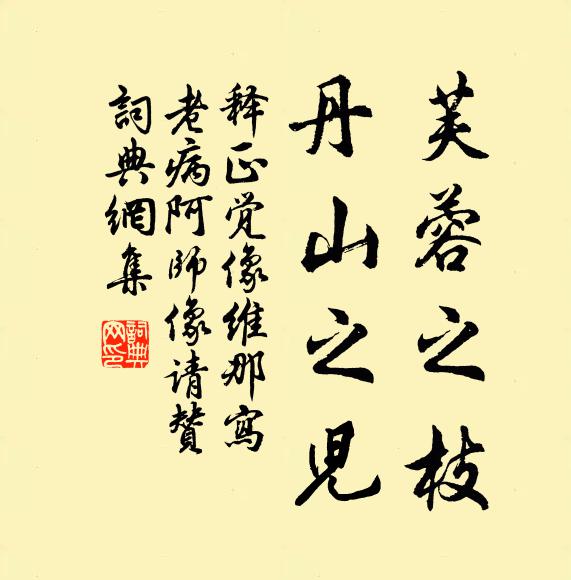 芙蓉之枝
丹山之児
释正觉像維那寫
老病阿師像请贊
詞典網集
詞典
网印